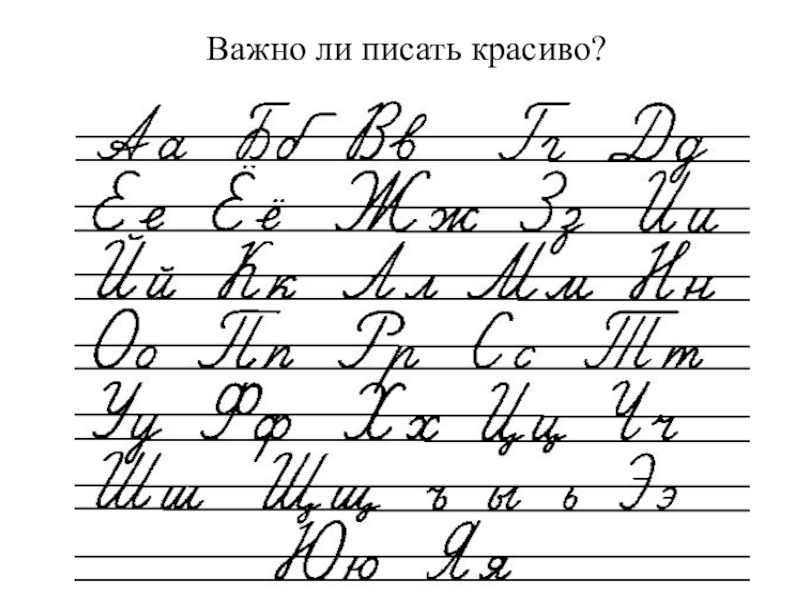 Важно ли писать красиво?
Аа Бб Вв Гг Дд
Ее Ёё Жж Зз Ии
Йй Кк Лл Мм Нн
Оо Пп Рр Сс Тт
Уу Фф Хх Цц Чч
Шш Щщ ъ ы ь Ээ
Юю Яя